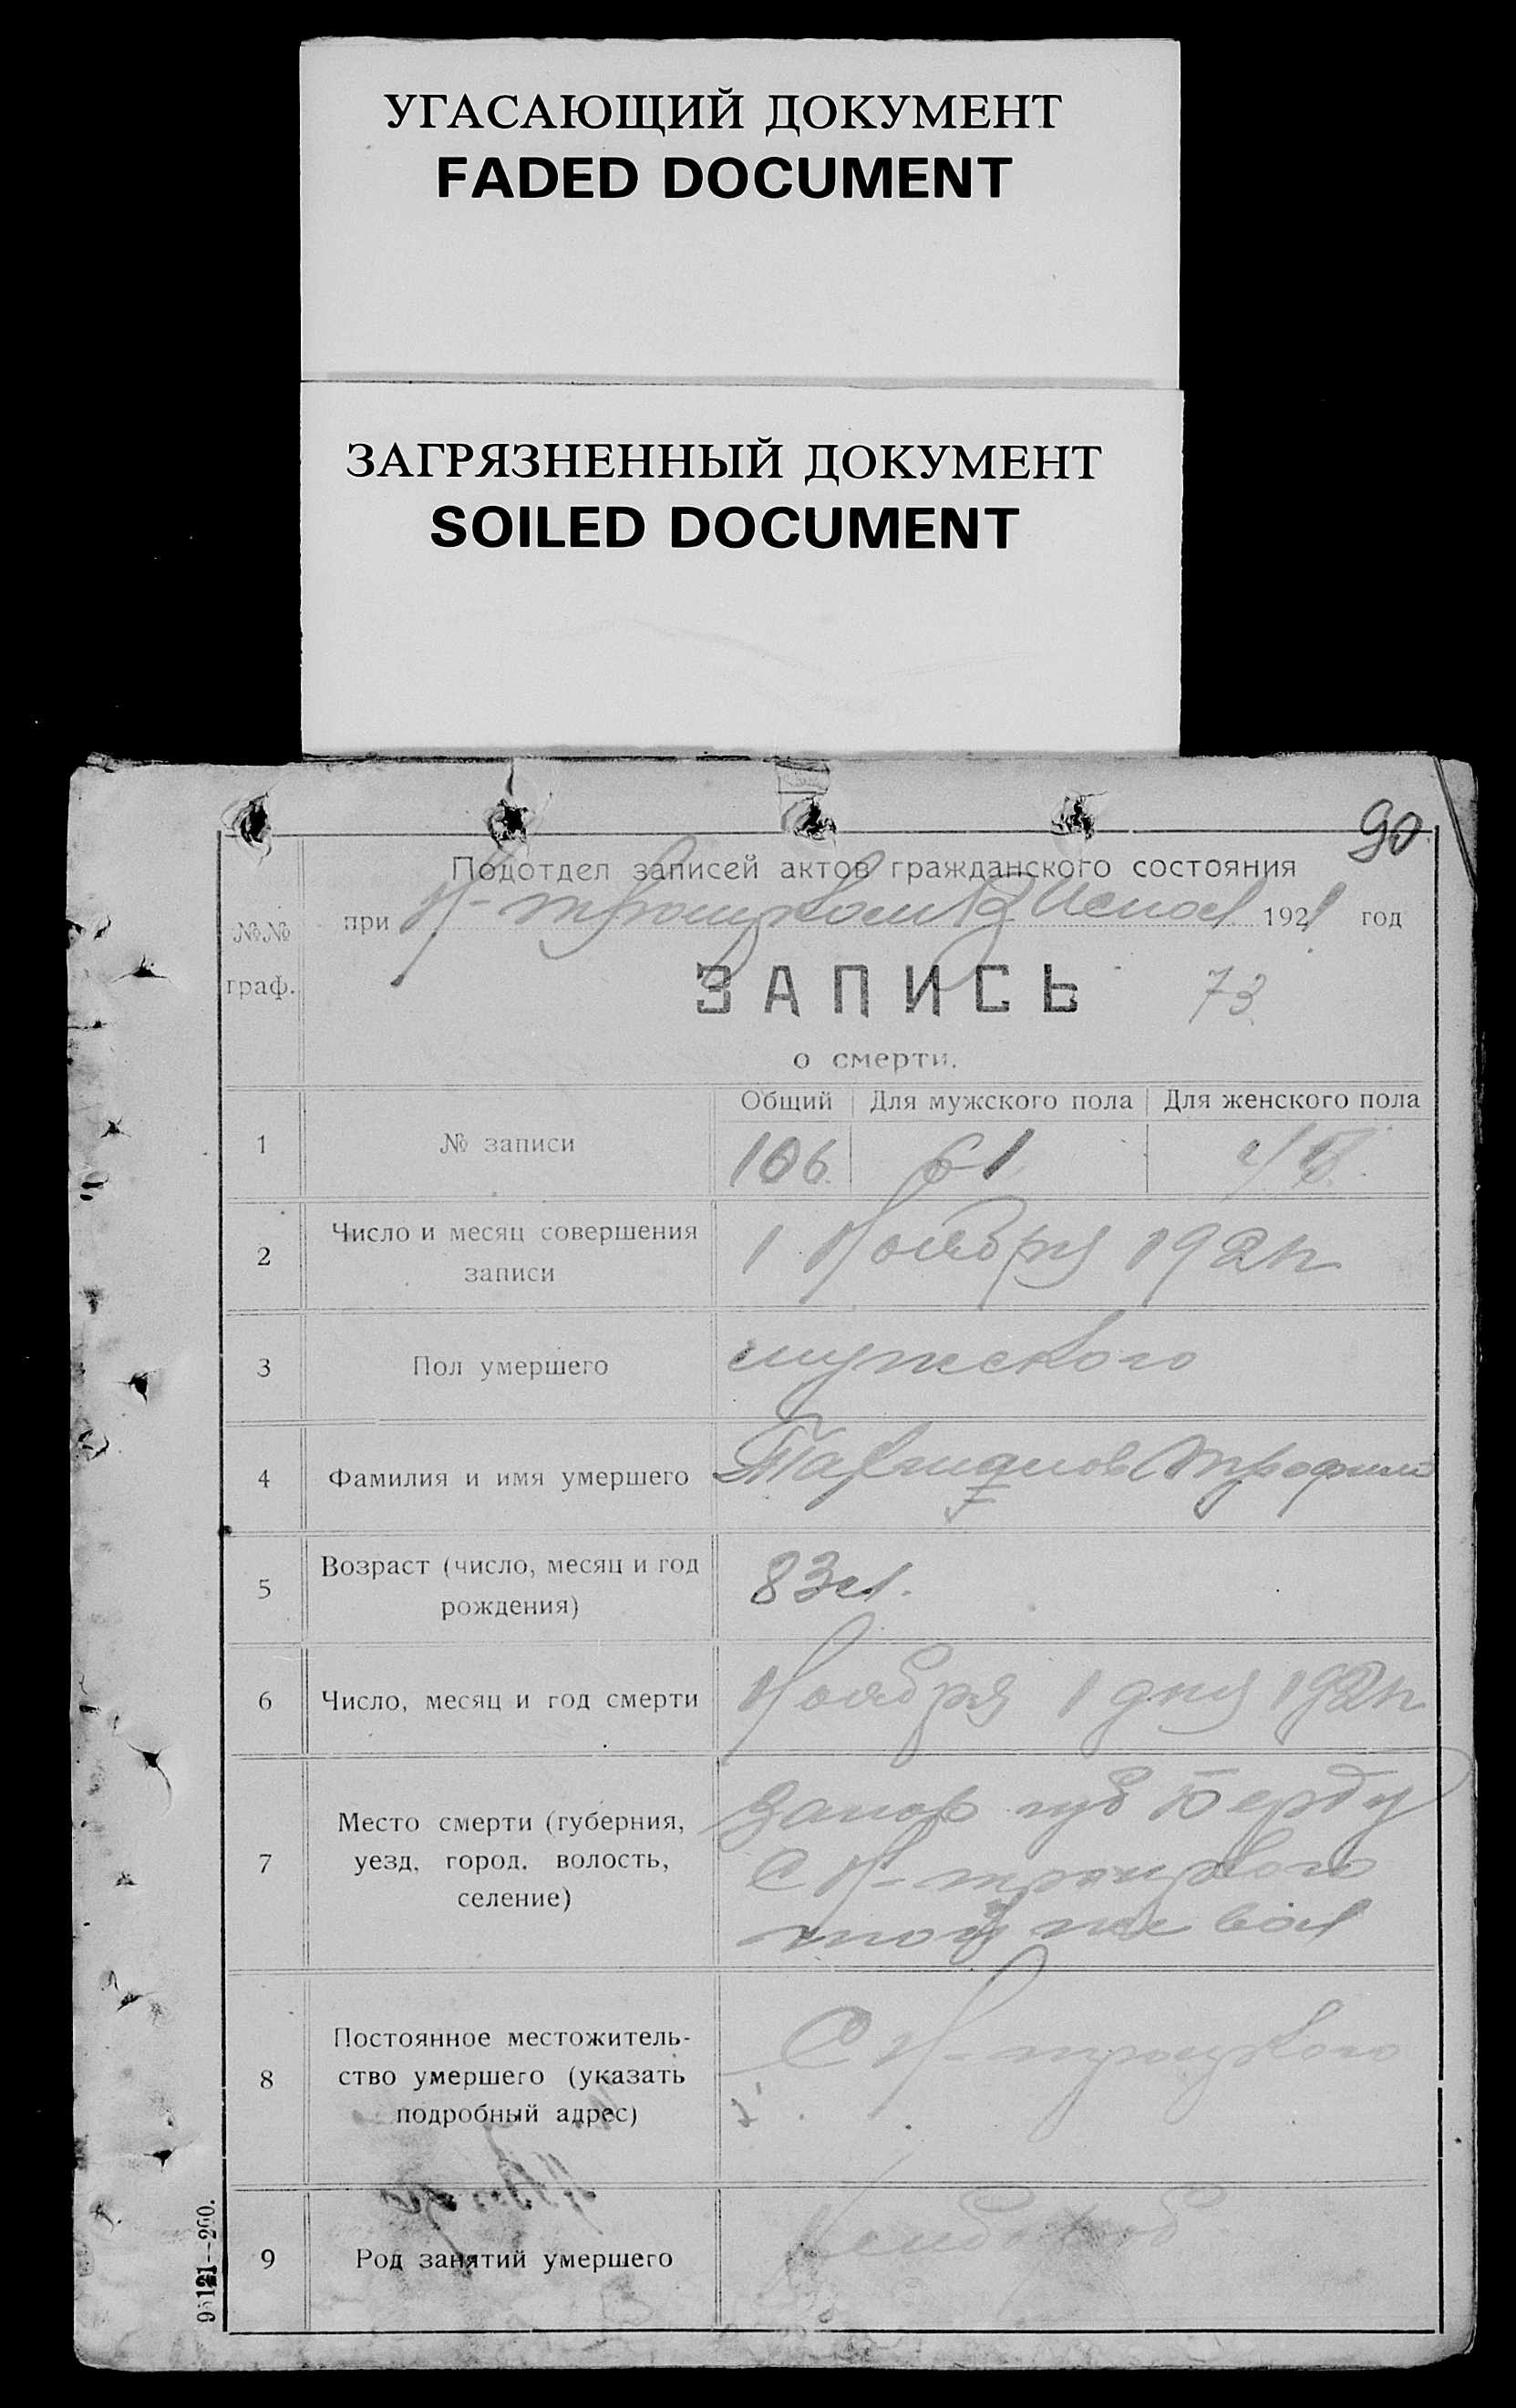 УГАСАЮЩИЙ ДОКУМЕНТ
FADED DOCUMENT
ЗАГРЯЗНЕННЫЙ ДОКУМЕНТ
SOILED DOCUMENT
90
Подотдел записей актов гражданского состояния
при Н-троицком В Испол 1921 год
№№
граф.
ЗАПИСЬ 73
о смерти.
Общий Для мужского пола Для женского пола
1 № записи 106 61
2 Число и месяц совершения
записи
1 Ноября 192
3 Пол умершего мужского
4 Фамилия и имя умершего Трофим
5 Возраст (число, месяц и год
рождения)
83 л.
6 Число, месяц и год смерти Ноября 1 дня 192
7 Место смерти (губерния,
уезд, город, волость,
селение)
Запор губ Берд у
С Н-троицкого
той же вол
8 Постоянное местожитель-
ство умершего (указать
подробный адрес)
С Н-троицкого
9 Род занятий умершего